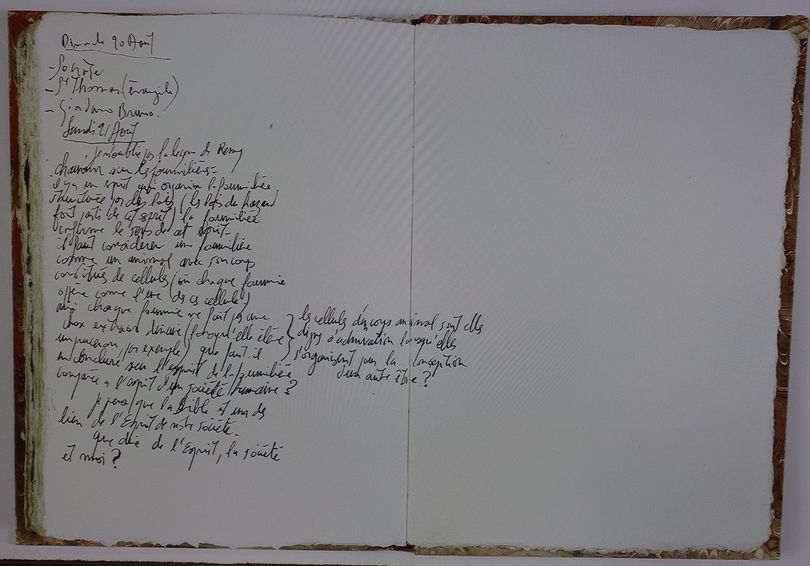 Dimanche 20 Août
- Socrate
- St Thomas (évangile)
- Giordano Bruno.
Lundi 21 Août
Je n'oublie pas la leçon de Remy
Chauvin sur les fourmilières.
il y a un esprit qui organise la fourmilière
structurée par des lois (les lois du hazard
font partie de cet esprit) la fourmilière
informe le sens de cet esprit.
il faut considérer une fourmilière
comme un animal avec son corps
constitués de cellules (où chaque fourmie
opère comme l'une de ces cellules)
mais chaque fourmie ne fait pas une
chose extraordinaire (lorsqu'elle élève
un puceron par exemple) que faut-il
en conclure sur l'esprit de la fourmilière
comparée à l'esprit d'une société humaine ?
les cellules d'un corps animal sont elles
dignes d'admiration lorsqu'elles
s'organisent pour la conception
d'un autre être ?
je pense que la Bible est un des
lien de l'Esprit de notre société.
que dire de l'Esprit, la société
et moi ?